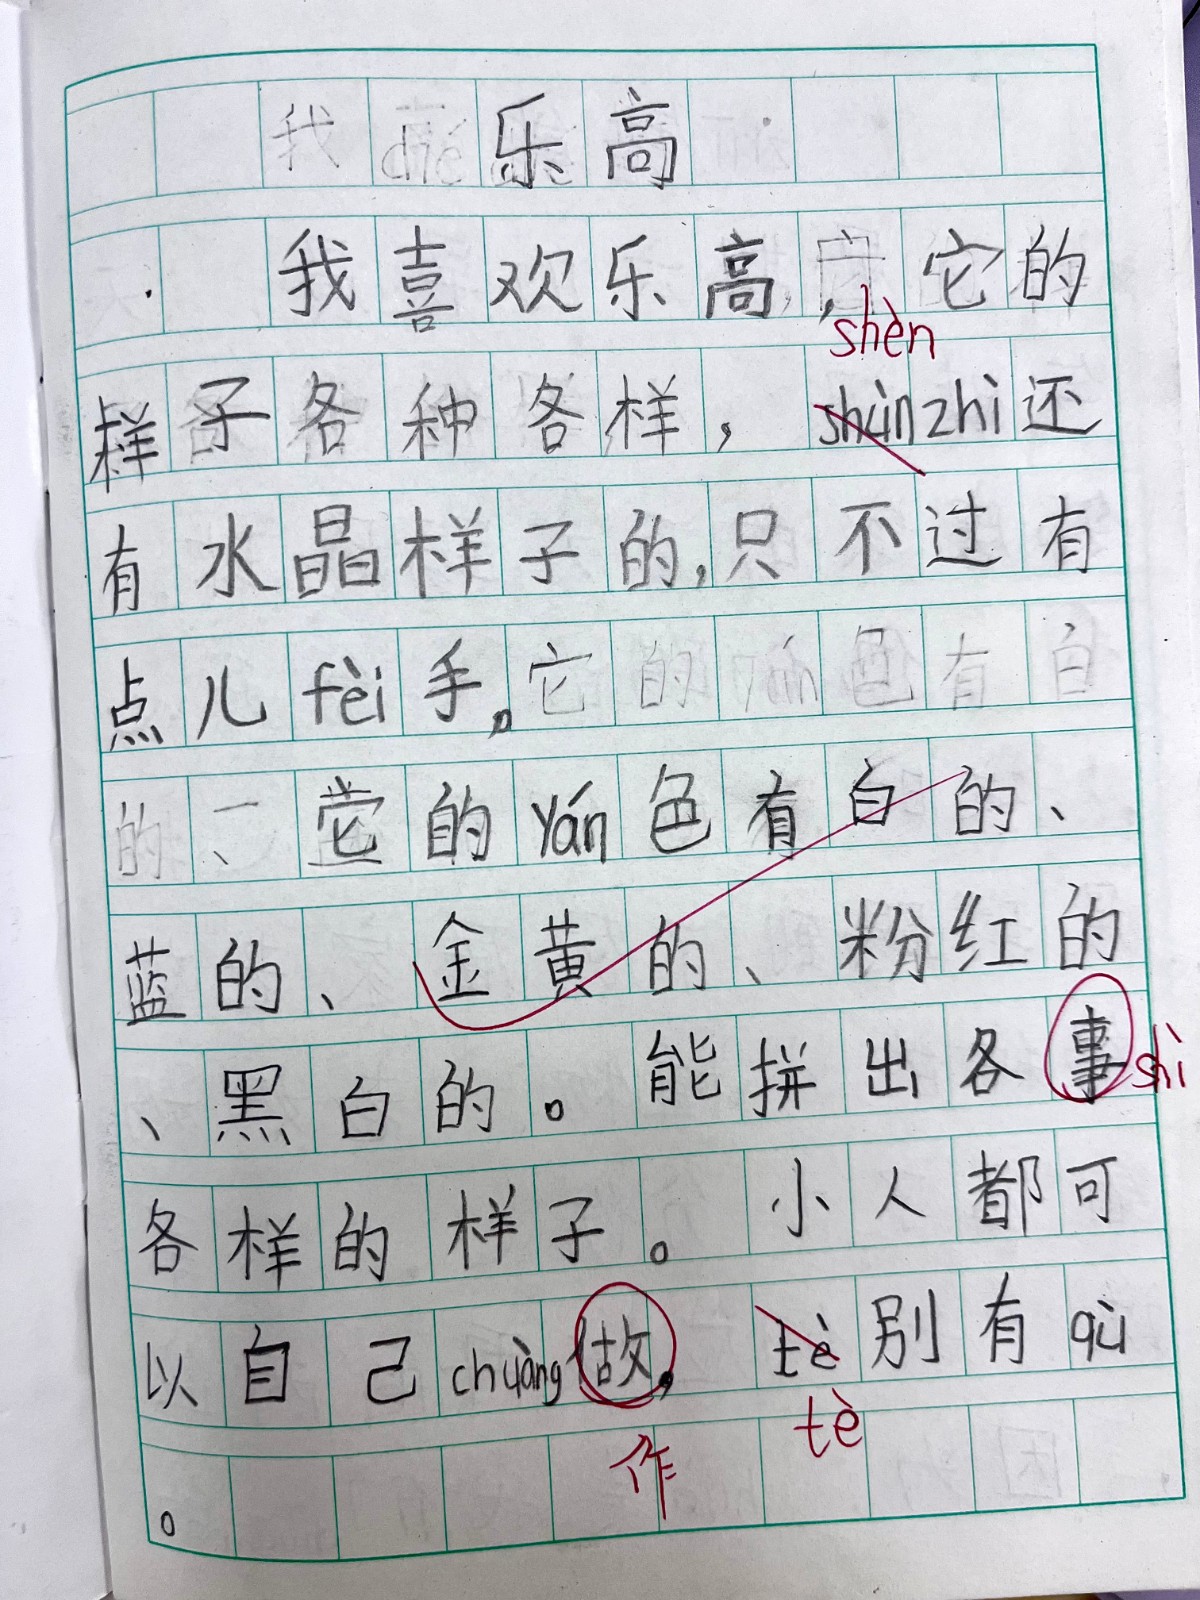 我 dié 乐高
我喜欢乐高，它的
shèn
样子各种各样，shùnzhì还
有水晶样子的，只不过有
点儿fèi手。它的yán色有白
的、它的yán色有白的、
蓝的、金黄的、粉红的
、黑白的。能拼出各事shì
各样的样子。小人都可
以自己chuàng做，tè别有qù
作 tè
。